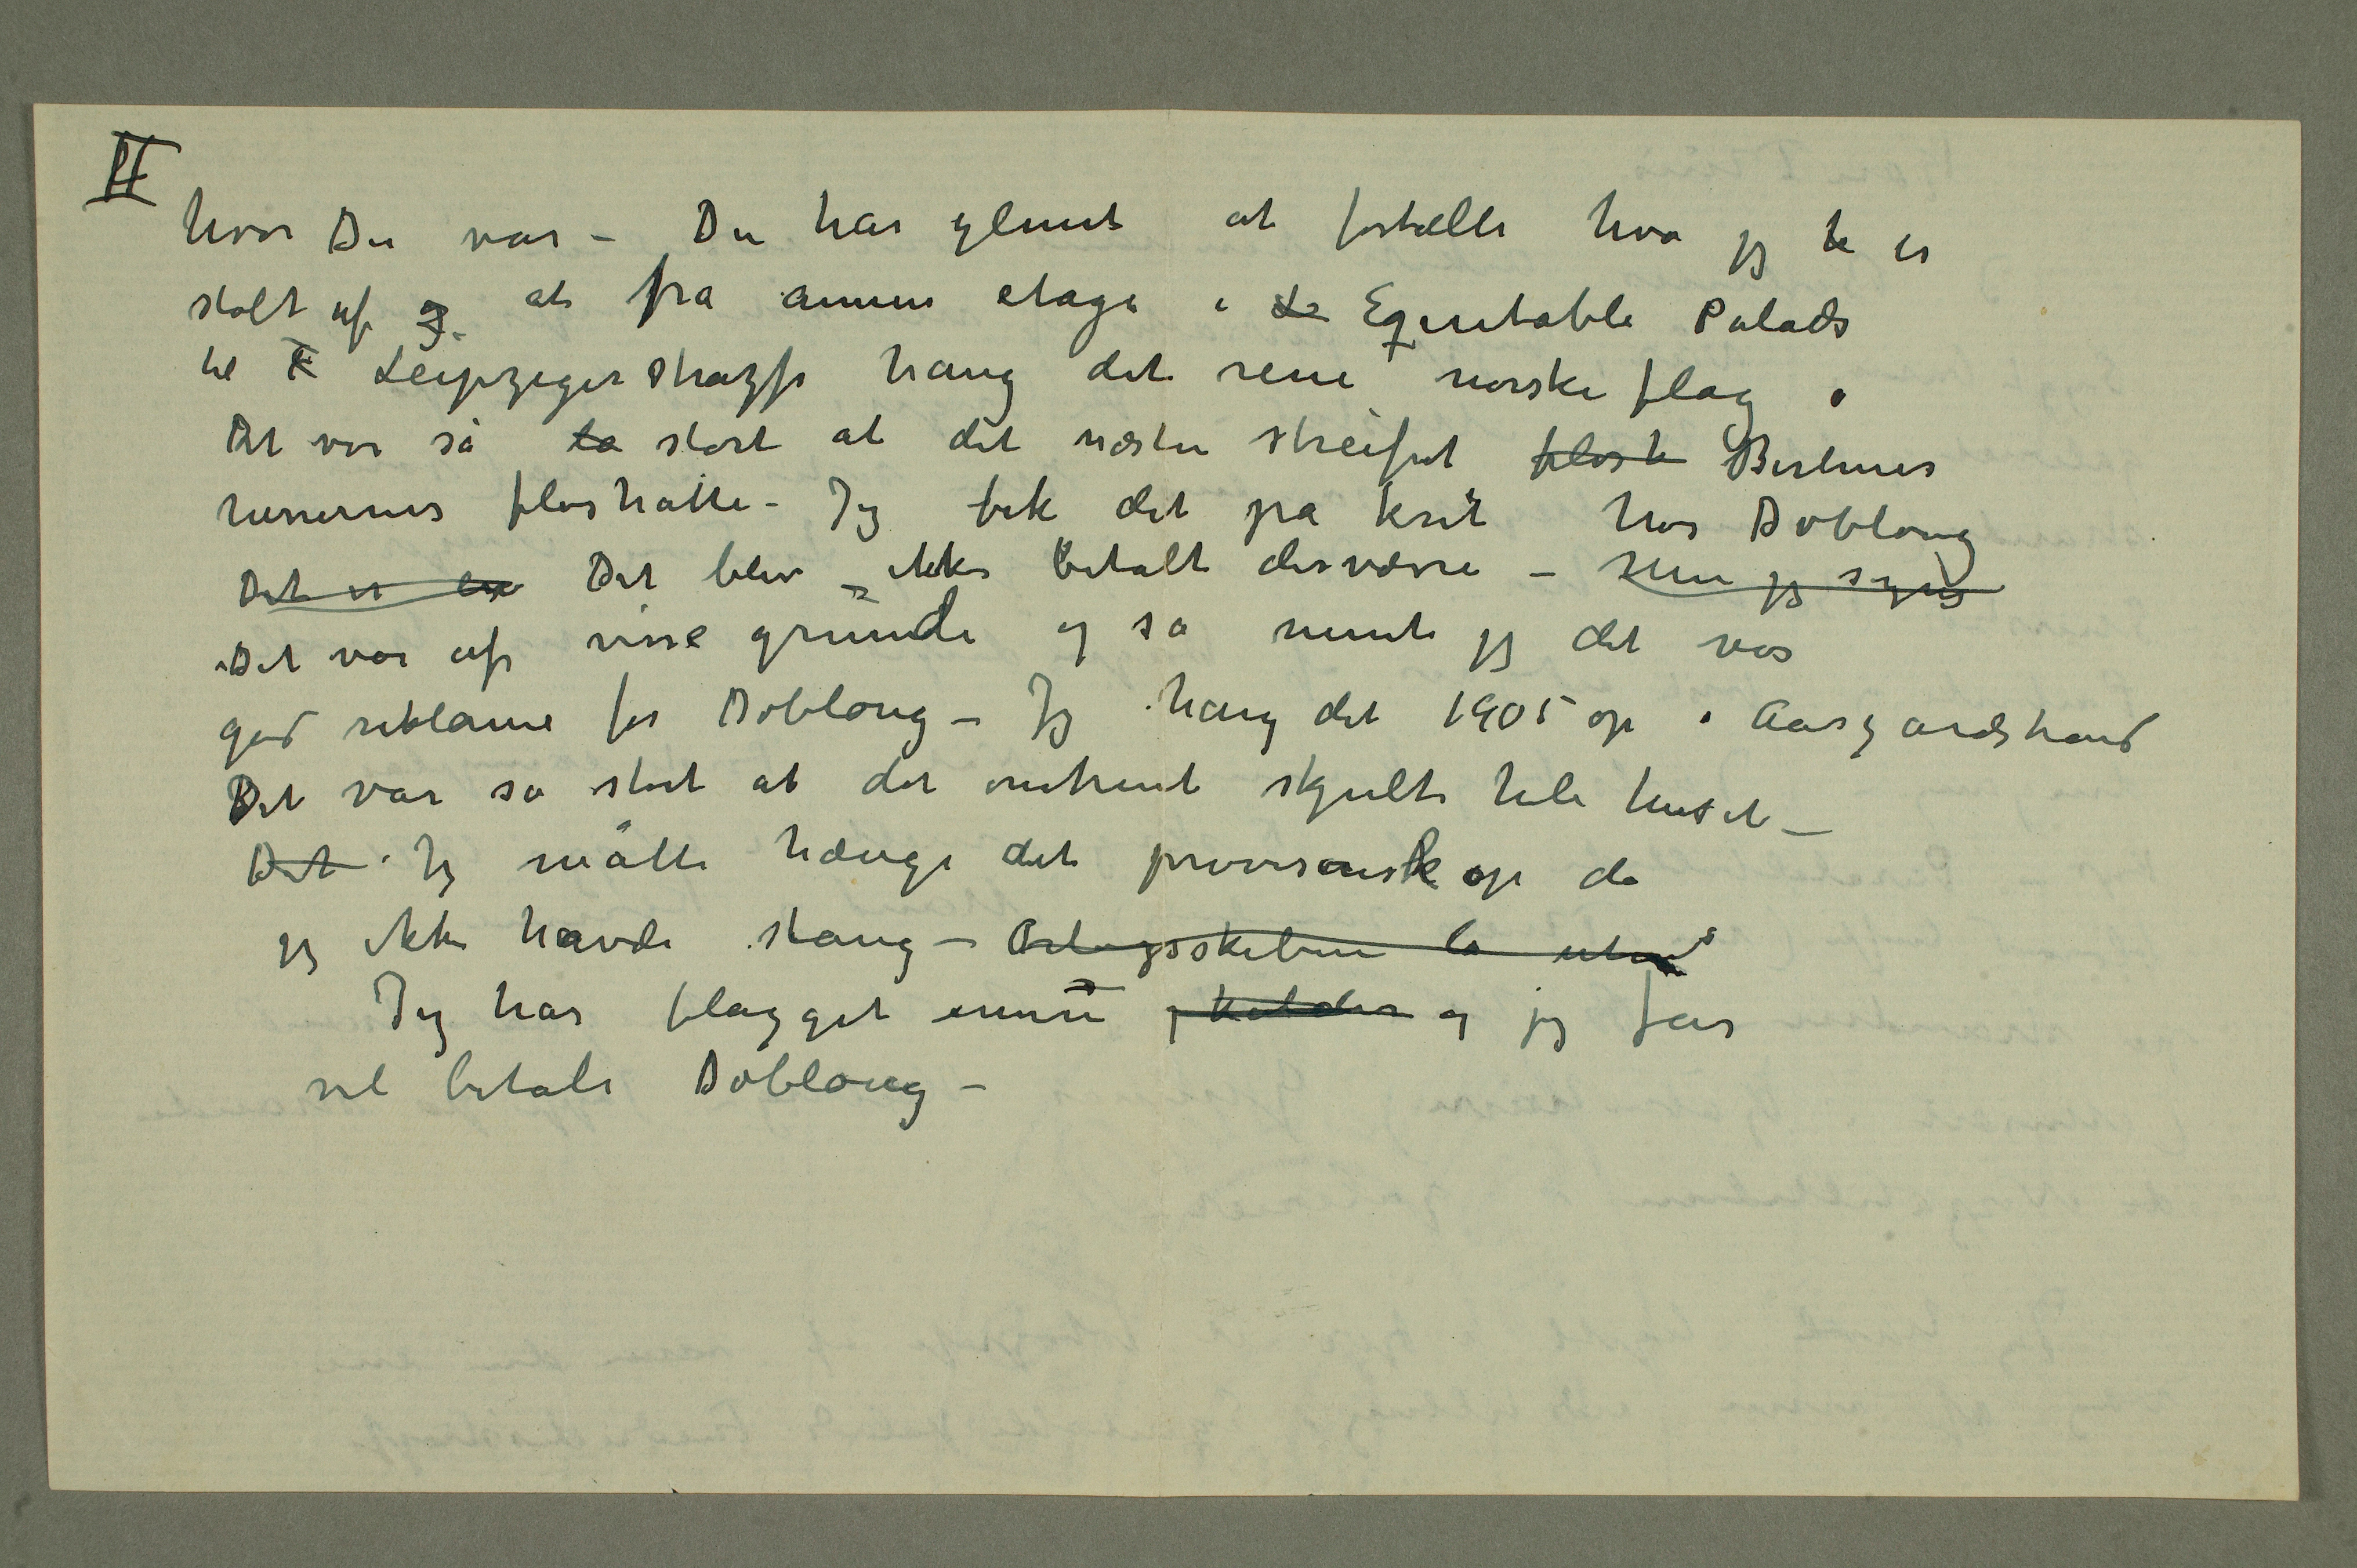 II
hvor Du var – Du har glemt at fortælle hva jeg er
stolt af at fra annen etage i Equitable Palads
til Leipzigerstrazse hang det rene norske flag.
Det var så stort at det næsten streifet Berliner
herrernes floshatte – Jeg fik det på krit hos Doblong
Det er Det blev ikke betalt desværre – Men jeg synes
Det var af visse grunde og så mente jeg det var
god reklame for Doblong – Jeg hang det 1905 op i Aasgardstrand
Det var så stort at det omtrent skjulte hele huset –
Det Jeg måtte hænge det provisorisk op da
jeg ikke havde stang – Orlogsskibene lå uten
Jeg har flagget ennu og jeg får
vel betale Doblong –